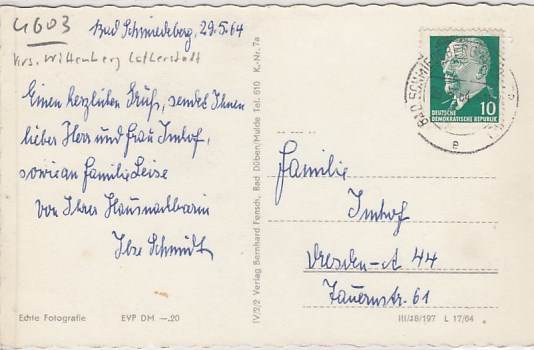 4603
Bad Schmiedeberg, 29.5.64
Krs. Wittenberg Lutherstadt
Einen herzlichen Gruß, sendet Ihnen
lieber Herr und Frau Imhof,
sowie an Familie Leise
von Ihrer Hausnachbarin
Ilse Schmidt
Echte Fotografie EVP DM —.20
IV/2/2 Verlag Bernhard Fensch, Bad Düben/Mulde Tel. 610 K.-Nr. 7a
BAD SCHMIEDEBERG
e
10
DEUTSCHE
DEMOKRATISCHE REPUBLIK
Familie
Imhof
Dresden-A 44
Tauernstr. 61
III/18/197 L 17/64